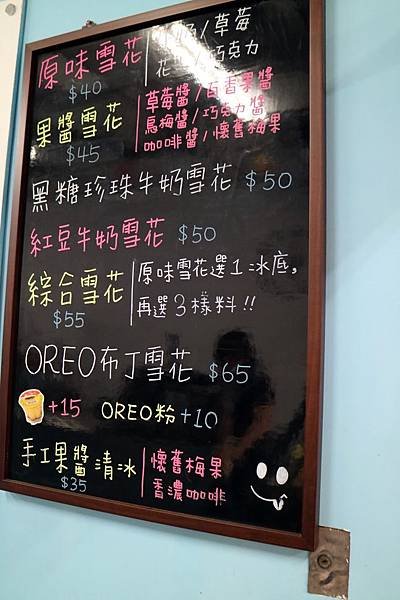 原味雪花
$40
草莓
花生/巧克力
果醬雪花
$45
草莓醬/百香果醬
烏梅醬/巧克力醬
咖啡醬/懷舊梅果
黑糖珍珠牛奶雪花 $50
紅豆牛奶雪花 $50
綜合雪花
$55
原味雪花選1冰底,
再選3樣料!!
OREO布丁雪花 $65
+15 OREO粉+10
手工果醬清冰
$35
懷舊梅果
香濃咖啡